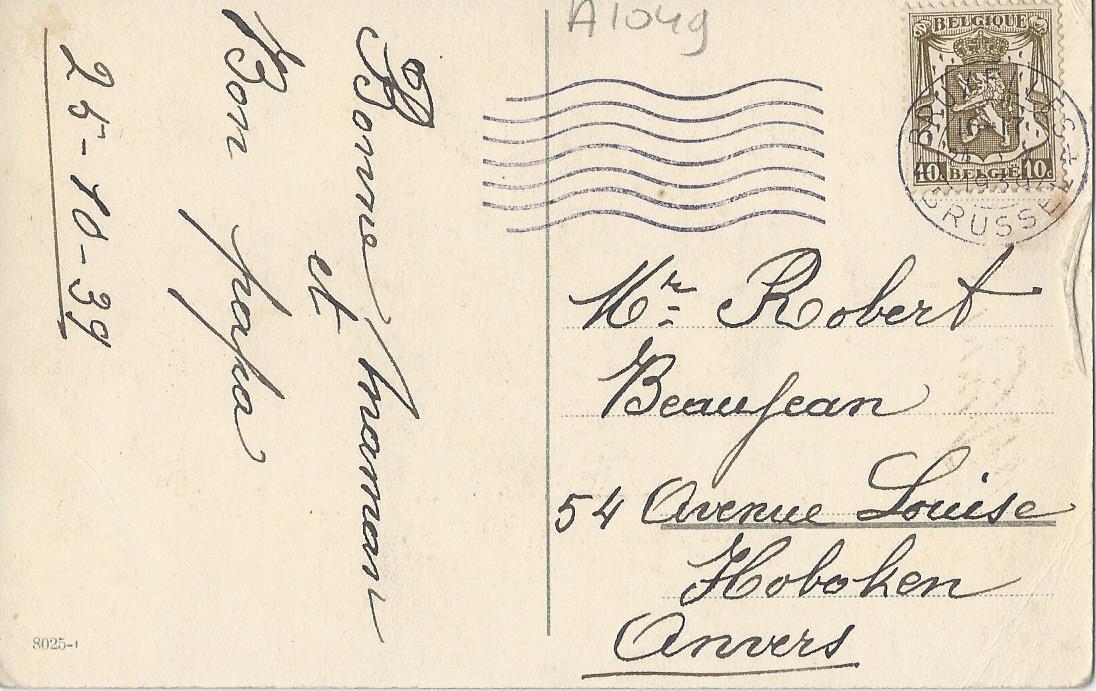 A1049
BELGIQUE
10c BELGIË 10c
BRUXELLES
1939
BRUSSEL
Bonne Maman
et
Bon papa
25-10-39
Mr Robert
Beaujean
54 Avenue Louise
Hoboken
Anvers
8025-1